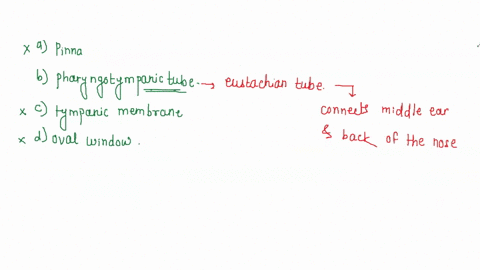 x a) Pinna
b) pharyngotympanic tube. → eustachian tube.
connects middle ear
x c) tympanic membrane
& back of the nose
x d) oval window.